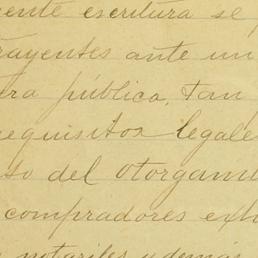 ente escritura se
rayentes ante un
ra pública, tan
equisitos legale
so del otorgami
compradores exh
notariles y demás